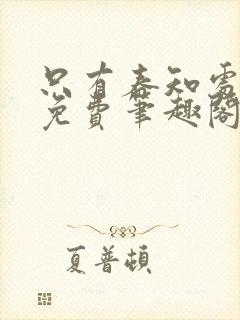 只有春知處
免費筆趣閣
夏普頓